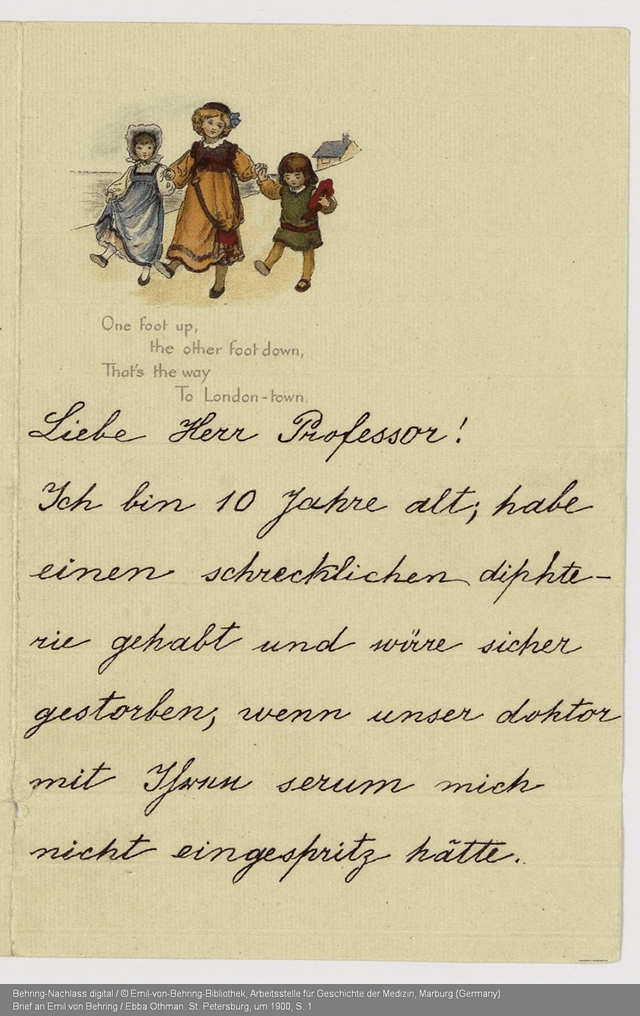 One foot up,
the other foot down,
That's the way
To London-town.
Liebe Herr Professor!
Ich bin 10 Jahre alt; habe
einen schrecklichen diphte-
rie gehabt und wäre sicher
gestorben, wenn unser doktor
mit serum mich
nicht eingespritz hätte.
Behring-Nachlass digital / © Emil-von-Behring-Bibliothek, Arbeitsstelle für Geschichte der Medizin, Marburg (Germany)
Brief an Emil von Behring / Ebba Othman. St. Petersburg, um 1900, S. 1